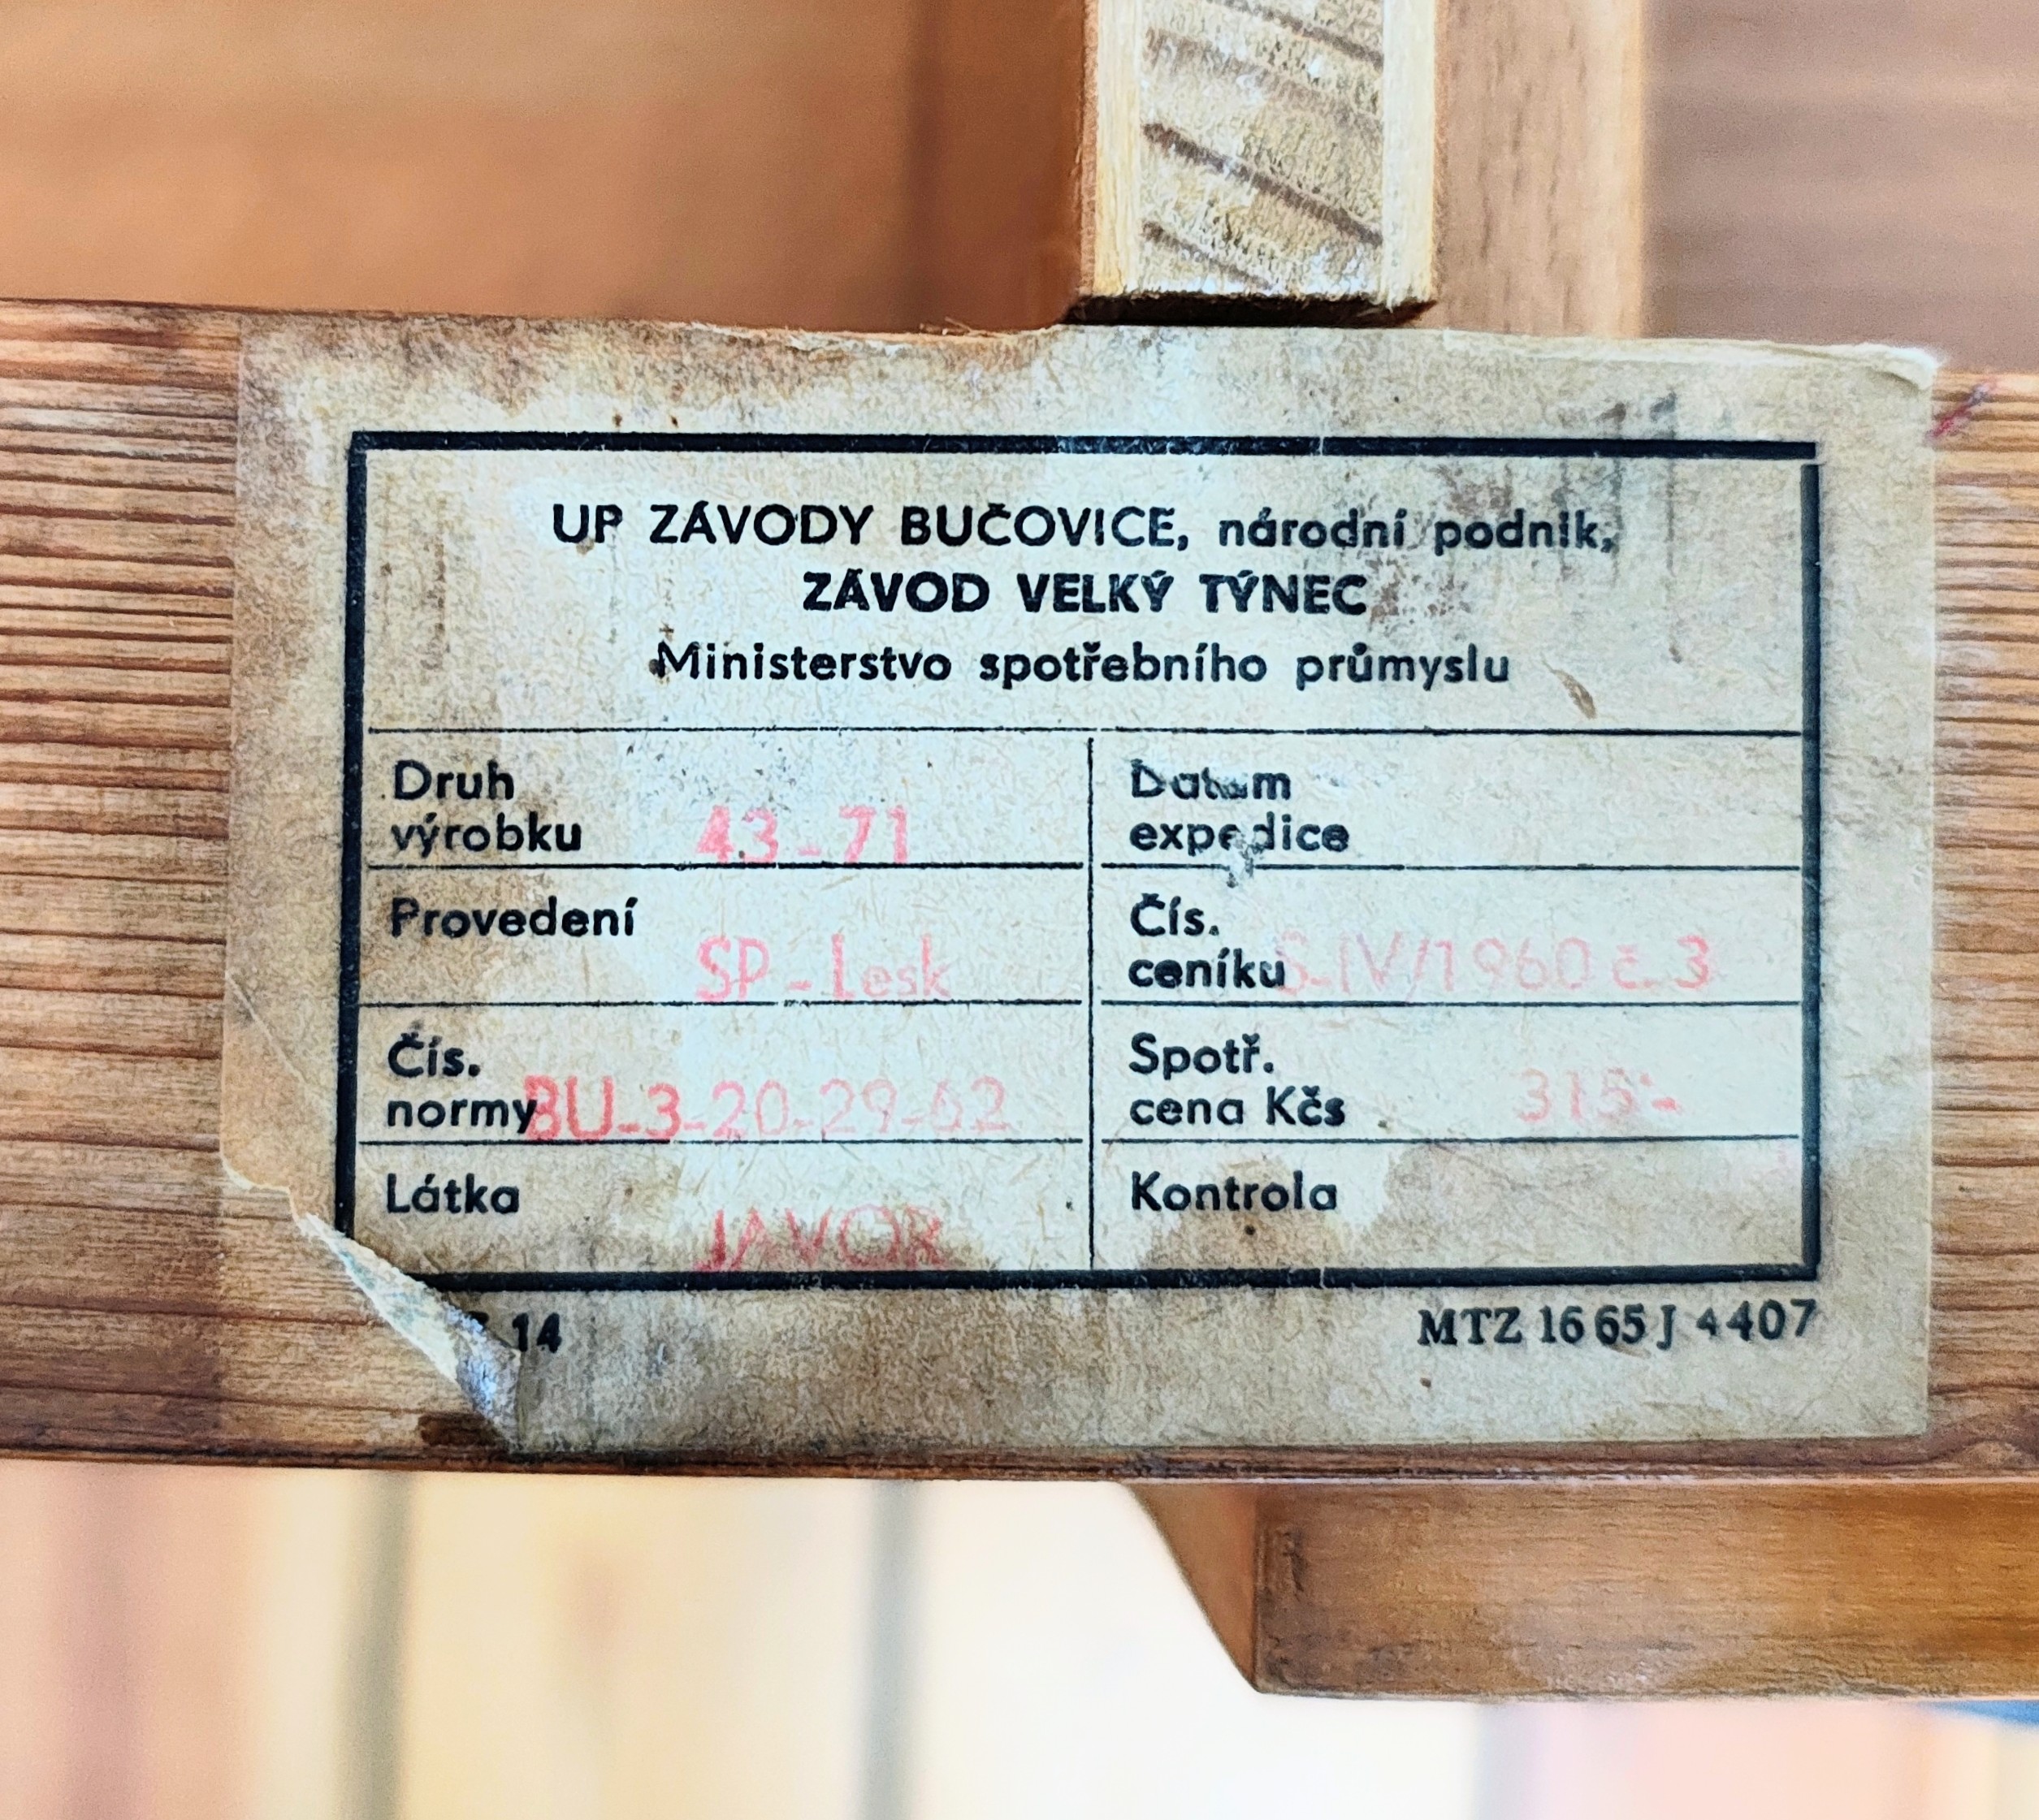 UP ZÁVODY BUČOVICE, národní podnik,
ZÁVOD VELKÝ TÝNEC
Ministerstvo spotřebního průmyslu
Druh
výrobku 43-71
Datum
expedice
Provedení
SP-Lesk
Čís.
ceníku S-IV/1960 č. 3
Čís.
normy BU-3-20-29-62
Spotř.
cena Kčs 315:-
Látka
JAVOR
Kontrola
14
MTZ 16 65 J 4407